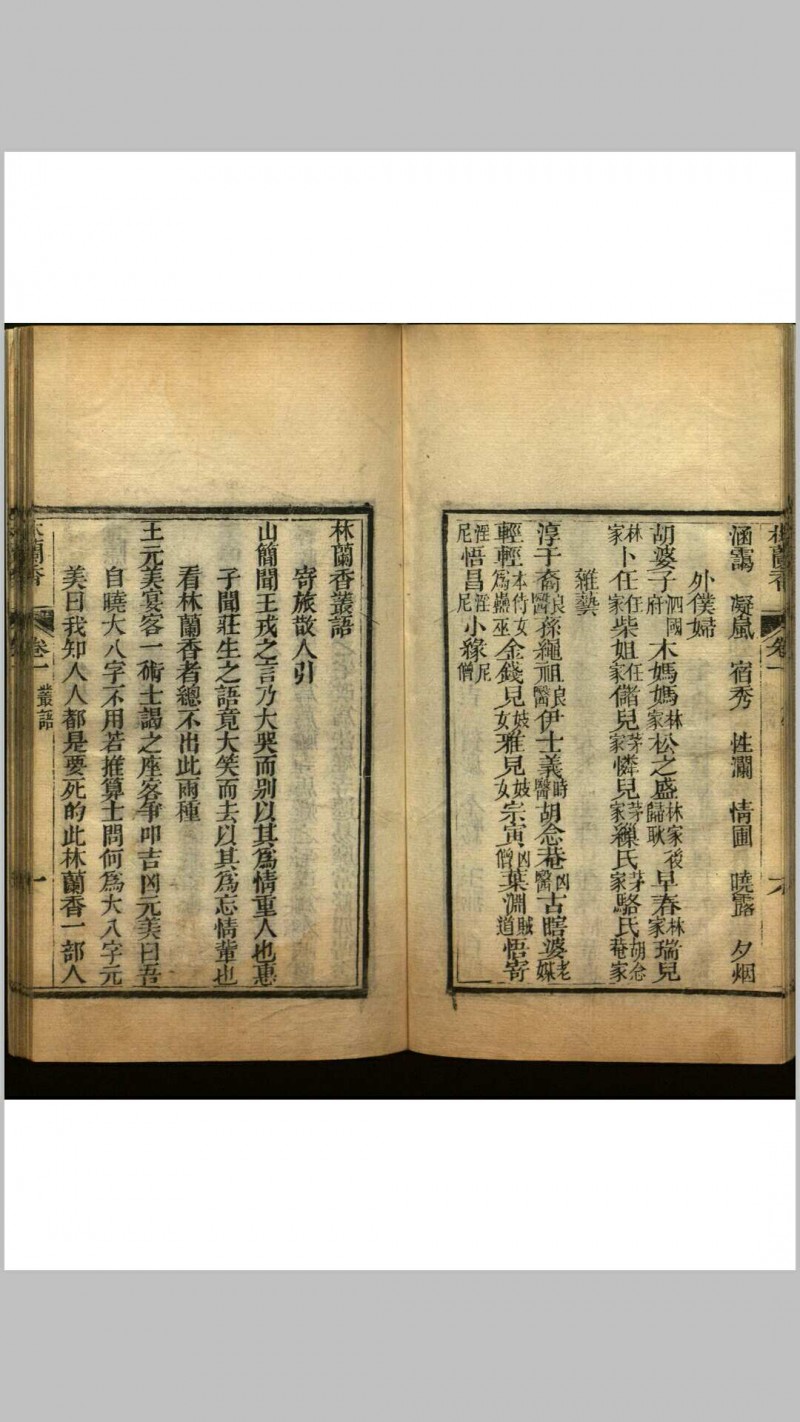 林蘭香 卷一 六
涵靄 凝嵐 宿秀 性瀾 情圃 曉露 夕烟
外僕婦
胡婆子泗國府 木媽媽林家 松之盛林家後歸耿 早春林家 瑞兒
林家 卜任任家 柴姐任家 儲兒茅家 憐兒茅家 纝氏茅家 駱氏胡念菴家
雜藝
淳于裔良醫 孫繩祖良醫 伊士義時醫 胡念菴凶醫 古瞎婆老媒
輕輕本侍女爲蠱巫 金錢兒妓女 雅兒妓女 宗寅凶僧 葉淵賊道 悟寄
淫尼 悟昌淫尼 小緣尼僧
林蘭香叢語
寄旅散人引
山簡聞王戎之言乃大哭而別以其爲情重人也惠
子聞莊生之語竟大笑而去以其爲忘情輩也
看林蘭香者總不出此兩種
王元美宴客一術士謁之座客爭叩吉凶元美曰吾
自曉大八字不用若推算士問何爲大八字元
美曰我知人人都是要死的此林蘭香一部人
林蘭香 卷一 叢語 一